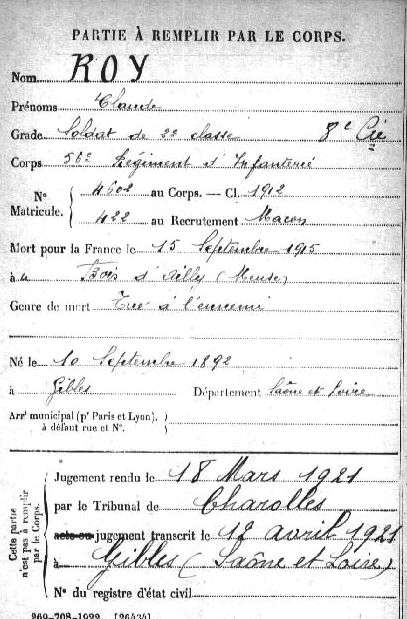 PARTIE À REMPLIR PAR LE CORPS.
Nom ROY
Prénoms Claude
Grade Soldat de 2e classe 8e Cie
Corps 56e Régiment d'Infanterie
N° Matricule. { 4602 au Corps. — Cl. 1912
422 au Recrutement Macon
Mort pour la France le 15 Septembre 1915
à Bois d'Ailly (Meuse)
Genre de mort Tué à l'ennemi
Né le 10 Septembre 1892
à Gibles Département Saône et Loire
Arr' municipal (p' Paris et Lyon),
à défaut rue et N°.
Cette partie n'est pas à remplir par le Corps.
Jugement rendu le 18 Mars 1921
par le Tribunal de Charolles
acte ou jugement transcrit le 12 avril 1921
à Gibles (Saône et Loire)
N° du registre d'état civil
269-708-1922. [26434]